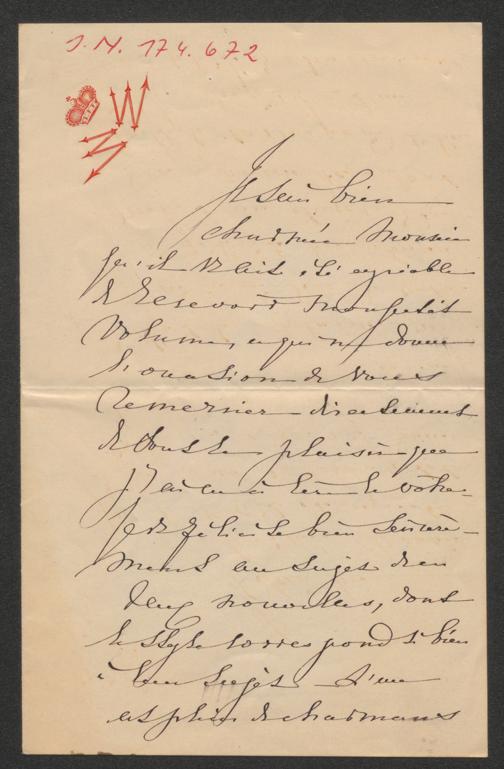 J.N. 174.672
W
W
Je suis bien
charmée Monsieur
qu'il vous ait été agréable
de recevoir mon petit
volume, ce qui me donne
l'occasion de vous
remercier directement
de tout le plaisir que
j'ai eu à lire le vôtre.
Je vous félicite bien sincère-
ment au sujet de ces
deux nouvelles, dont
le style correspond si bien
à leur sujet. L'une
est pleine de charmants